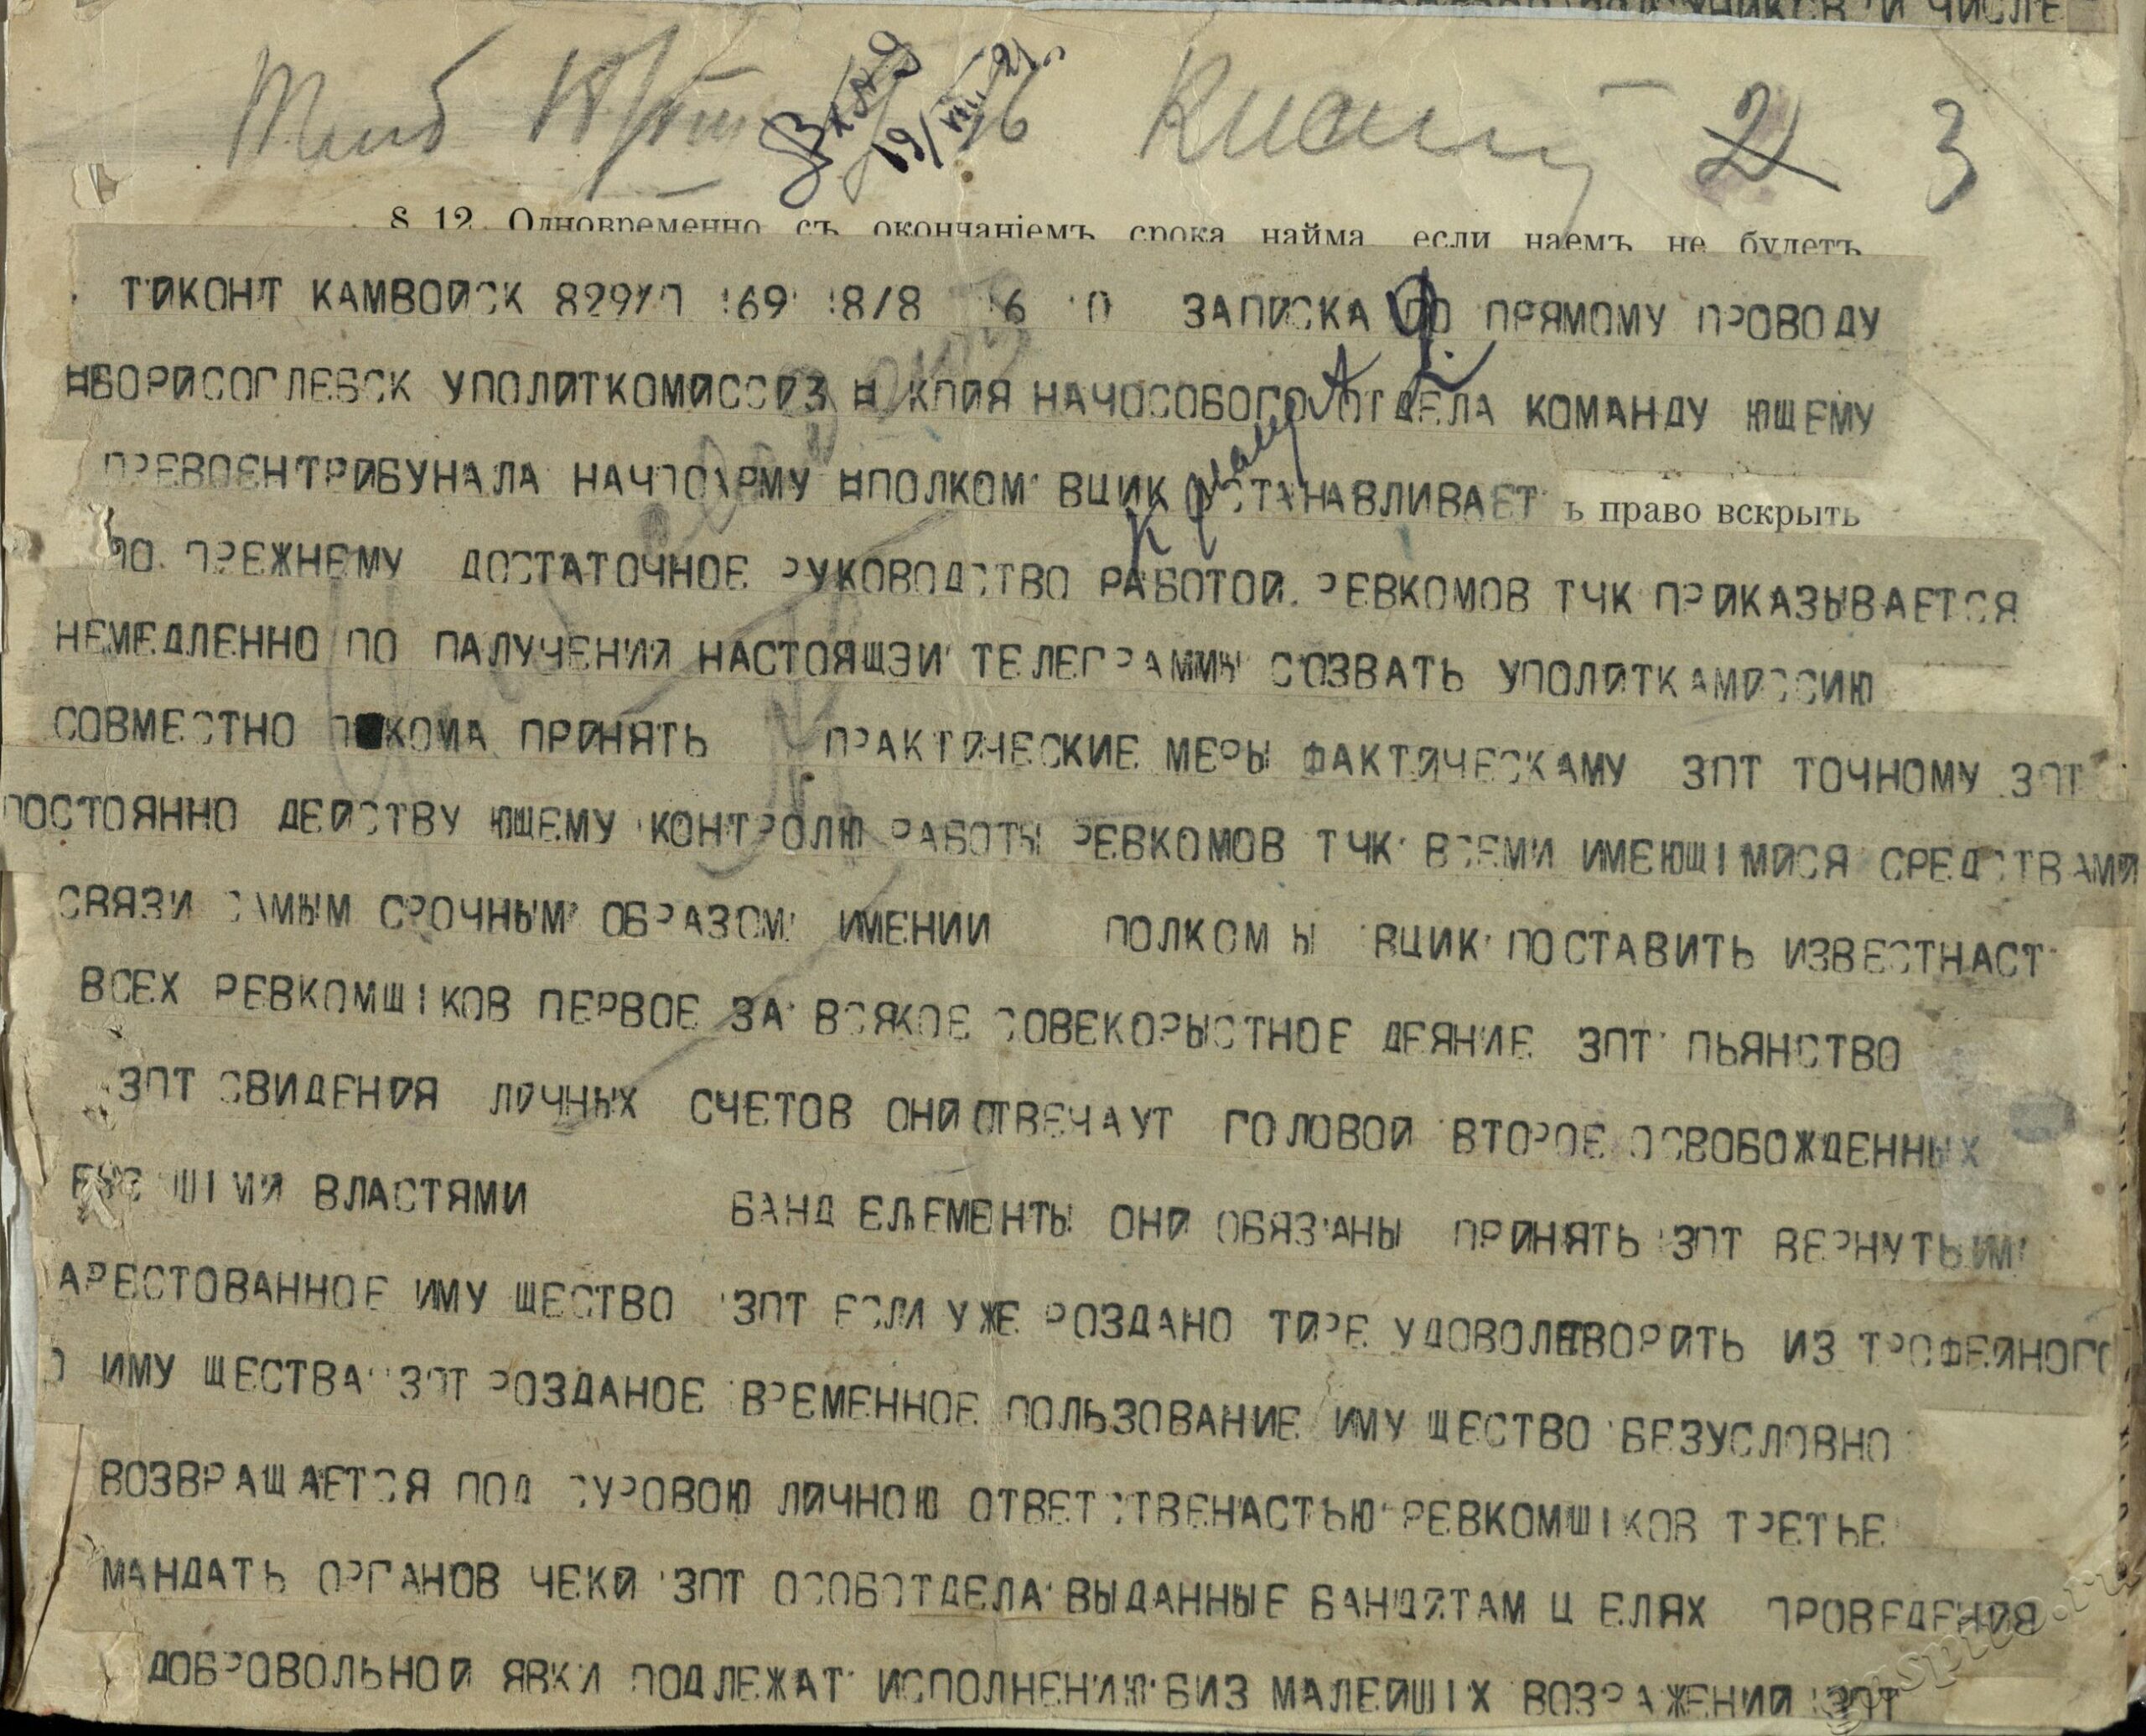 И ЧИСЛЕ
Вх № 9
19/VIII 21.
2 3
§ 12. Одновременно съ окончаніемъ срока найма, если наемъ не будетъ
ТИКОНТ КАМВОИСК 829/П 169 18/8 16 10 ЗАПИСКА ПО ПРЯМОМУ ПРОВОДУ
БОРИСОГЛЕБСК УПОЛИТКОМИССИЗ КПИЯ НАЧОСОБОГО ОТДЕЛА КОМАНДУ ЮЩЕМУ
ПРЕВОЕНТРИБУНАЛА НАЧПОАРМУ ПОЛКОМ ВЦИК УСТАНАВЛИВАЕТ ъ право вскрыть
ПО ПРЕЖНЕМУ ДОСТАТОЧНОЕ РУКОВОДСТВО РАБОТОИ РЕВКОМОВ ТЧК ПРИКАЗЫВАЕТСЯ
НЕМЕДЛЕННО ПО ПАЛУЧЕНИЯ НАСТОЯЩЭИ ТЕЛЕГРАММЫ СОЗВАТЬ УПОЛИТК АМИССИЮ
СОВМЕСТНО КОМА ПРИНЯТЬ ПРАКТИЧЕСКИЕ МЕРЫ ФАКТИЧЕСКАМУ ЗПТ ТОЧНОМУ ЗПТ
ПОСТОЯННО ДЕИСТВУ ЮЩЕМУ КОНТРОЛЮ РАБОТЫ РЕВКОМОВ ТЧК ВСЕМИ ИМЕЮЩIМИСЯ СРЕДСТВАМИ
СВЯЗИ САМЫМ СРОЧНЫМ ОБРАЗОМ ИМЕНИИ ПОЛКОМ Ы ВЦИК ПОСТАВИТЬ ИЗВЕСТНАСТ
ВСЕХ РЕВКОМЩIКОВ ПЕРВОЕ ЗА ВСЯКОЕ СОВЕКОРЫСТНОЕ ДЕЯНИЕ ЗПТ ПЬЯНСТВО
ЗПТ СВИДЕНИЯ ЛИЧНЫХ СЧЕТОВ ОНИ ОТВЕЧАУТ ГОЛОВОИ ВТОРОЕ ОСВОБОЖДЕННЫХ
ВЛАСТЯМИ БАНД ЕЛЕМЕНТЫ ОНИ ОБЯЗАНЫ ПРИНЯТЬ ЗПТ ВЕРНУТЬ ИМ
АРЕСТОВАННОЕ ИМУ ЩЕСТВО ЗПТ ЕСЛИ УЖЕ РОЗДАНО ТИРЕ УДОВОЛЕТВОРИТЬ ИЗ ТРОФЕИНОГО
О ИМУ ЩЕСТВА ЗПТ РОЗДАНОЕ ВРЕМЕННОЕ ПОЛЬЗОВАНИЕ ИМУ ЩЕСТВО БЕЗУСЛОВНО
ВОЗВРАЩАЕТСЯ ПОД СУРОВОЮ ЛИЧНОЮ ОТВЕТСТВЕНАСТЬЮ РЕВКОМЩIКОВ ТРЕТЬЕ
МАНДАТЬ ОРГАНОВ ЧЕКИ ЗПТ ОСОБОТДЕЛА ВЫДАННЫЕ БАНДИТАМ Ц ЕЛЯХ ПРОВЕДЕНИЯ
ДОБРОВОЛЬНОИ ЯВКИ ПОДЛЕЖАТ ИСПОЛНЕНИЮ БИЗ МАЛЕИШIХ ВОЗРАЖЕНИИ ЗПТ
gaspito.ru